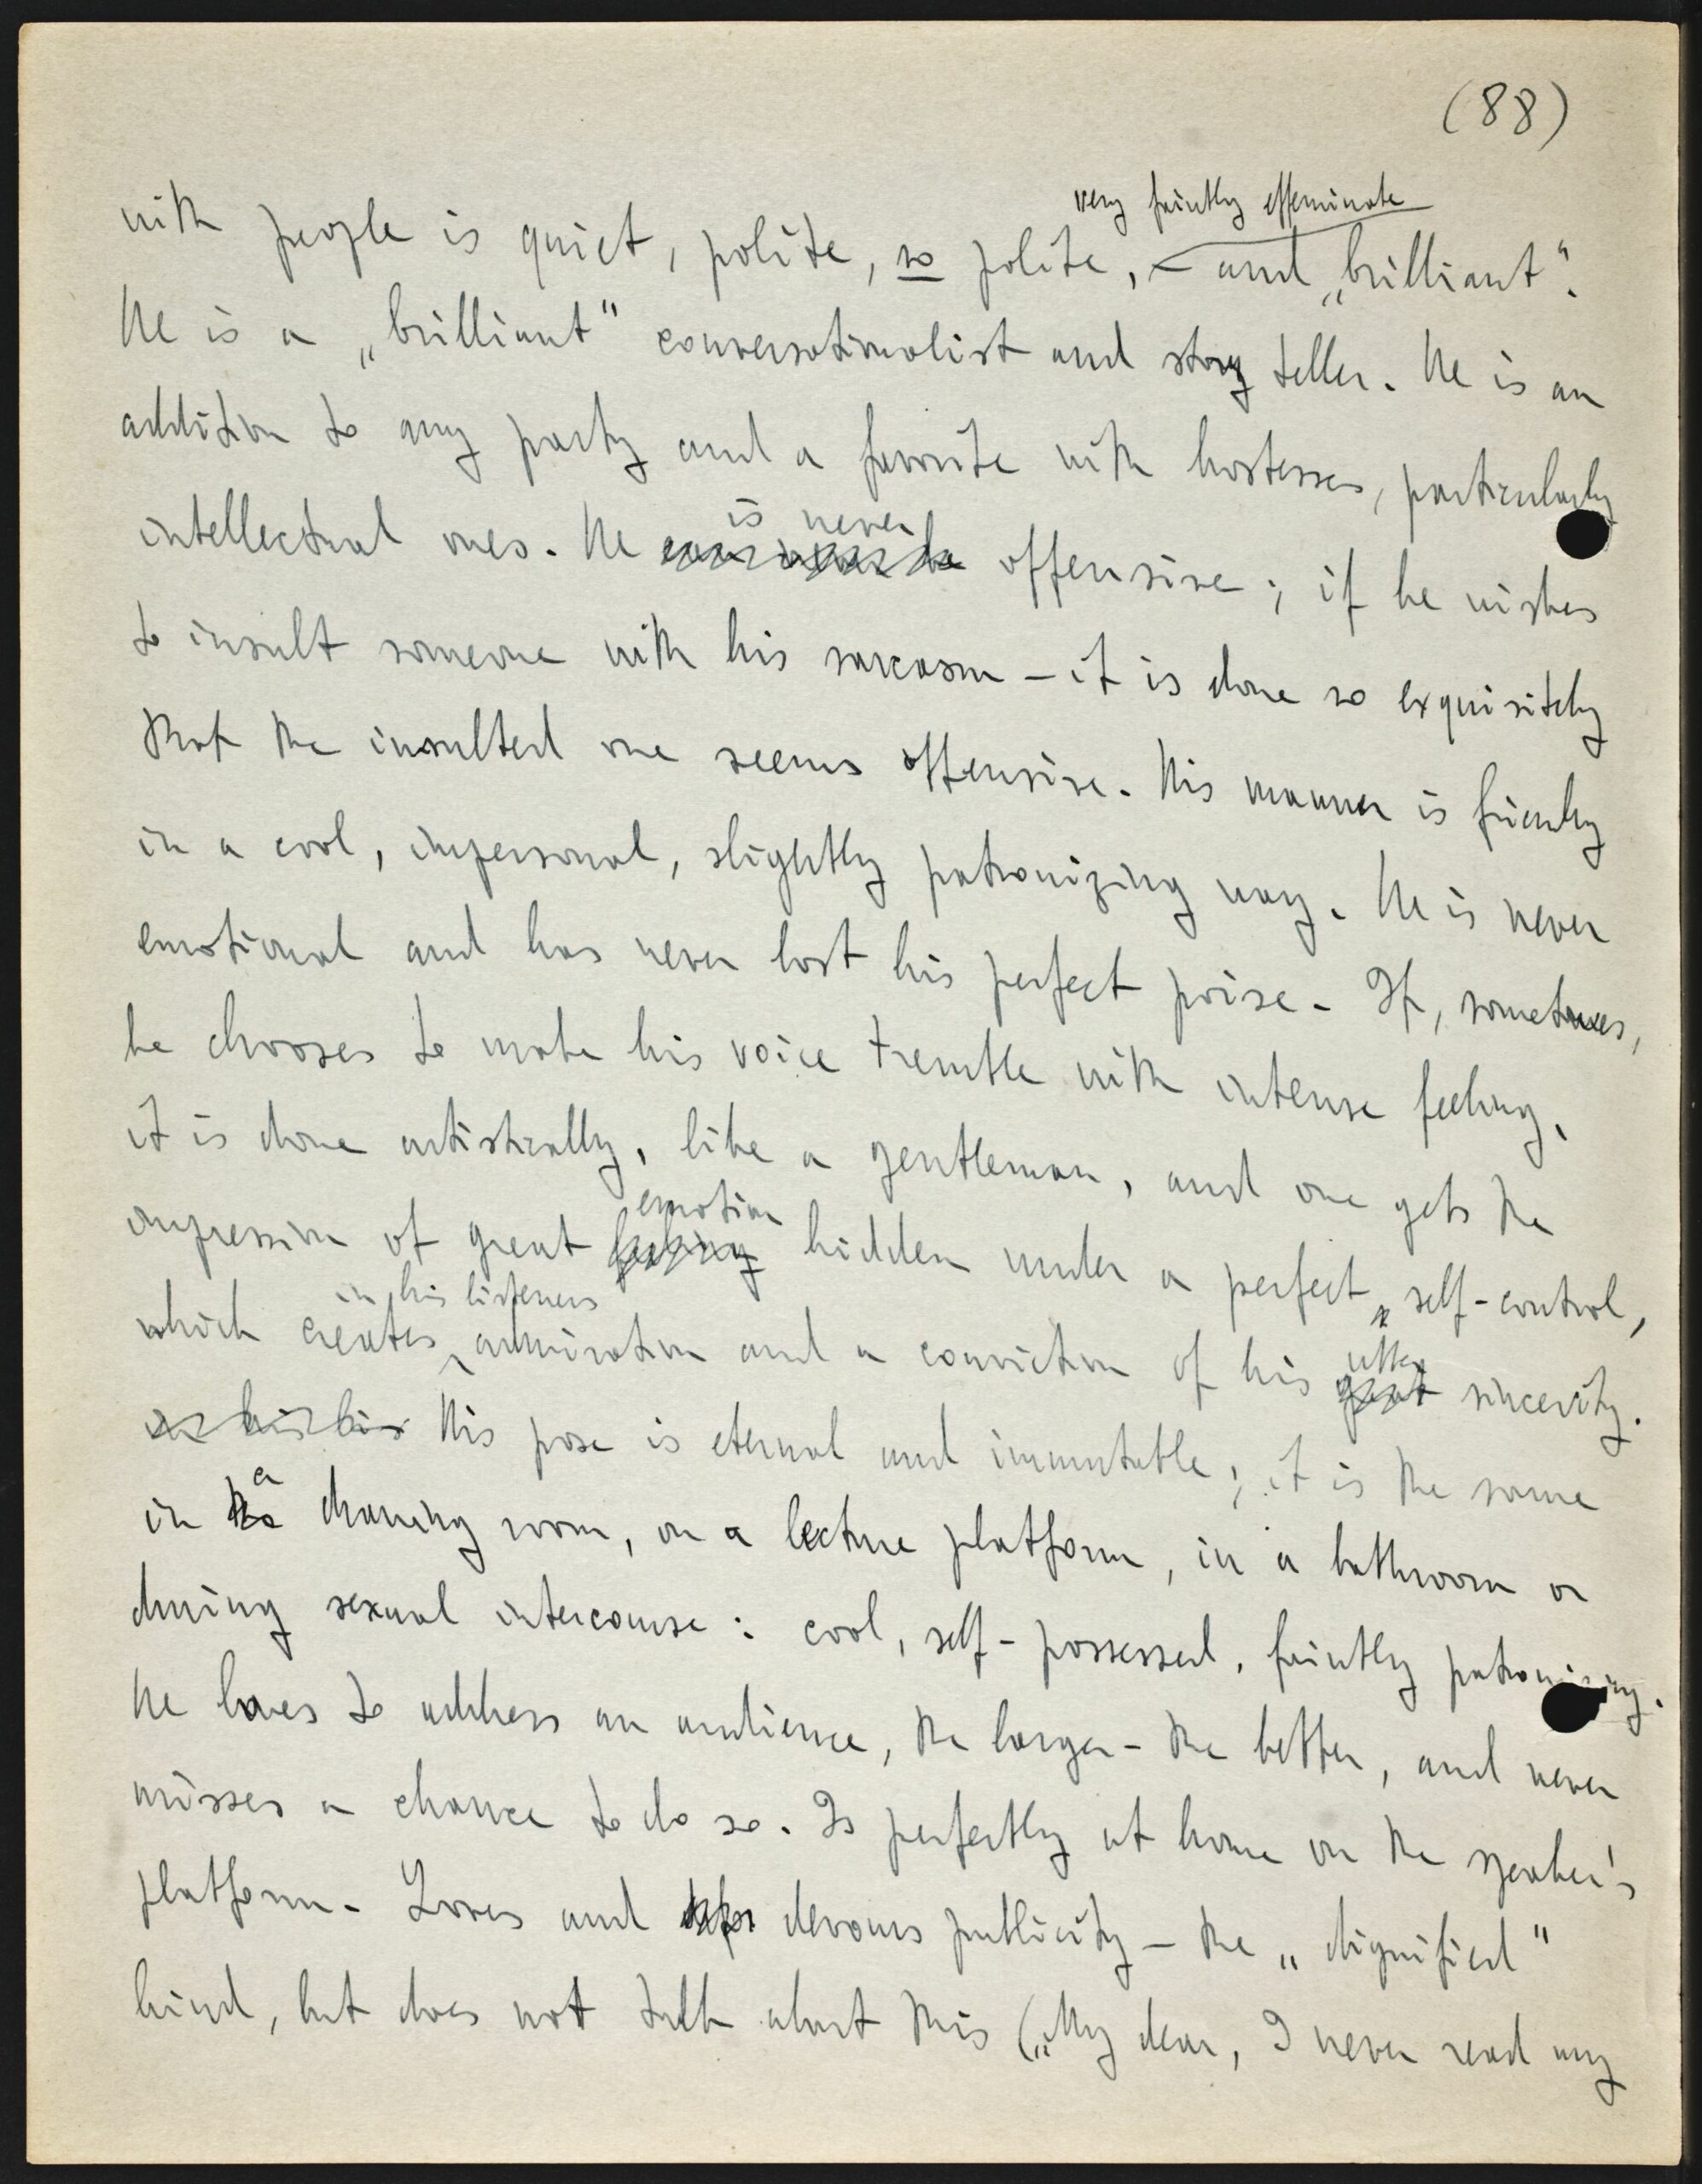 (88)
very faintly effeminate
with people is quiet, polite, so polite, and „brilliant".
He is a „brilliant" conversationalist and story teller. He is an
addition to any party and a favorite with hostesses, particularly
is never
intellectual ones. He can never be offensive; if he wishes
to insult someone with his sarcasm – it is done so exquisitely
that the insulted one seems offensive. His manner is friendly
in a cool, impersonal, slightly patronizing way. He is never
emotional and has never lost his perfect poise. If, sometimes,
he chooses to make his voice tremble with intense feeling,
it is done artistically, like a gentleman, and one gets the
emotion
impression of great feeling hidden under a perfect self-control,
in his listeners
which creates admiration and a conviction of his great sincerity.
utter
His pose is eternal and immutable; it is the same
a
in the drawing room, on a lecture platform, in a bathroom or
during sexual intercourse: cool, self-possessed, faintly patronizing.
He loves to address an audience, the larger – the better, and never
misses a chance to do so. Is perfectly at home on the speaker's
platform. Loves and devours publicity – the „dignified"
kind, but does not talk about this („My dear, I never read my